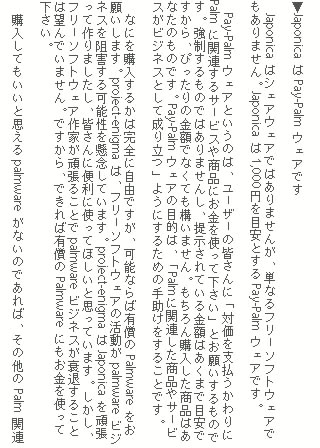 ▼Japonica は Pay-Palm ウェアです
Japonica はシェアウェアではありませんが、単なるフリーソフトウェアで
もありません。Japonica は 1,000円を目安とする Pay-Palm ウェアです。
Pay-Palm ウェアというのは、ユーザーの皆さんに「対価を支払うかわりに
Palm に関連するサービスや商品にお金を使って下さい」とお願いするもので
す。強制するものではありませんし、提示されている金額はあくまで目安で
すから、ぴったりの金額でなくても構いません。もちろん購入した商品はあ
なたのものです。Pay-Palm ウェアの目的は、「Palm に関連した商品やサービ
スがビジネスとして成り立つ」ようにするための手助けをすることです。
なにを購入するかは完全に自由ですが、可能ならば有償の Palmware をお
願いします。project-enigma は、フリーソフトウェアの活動が palmware ビジ
ネスを阻害する可能性を懸念しています。project-enigma は Japonica を頑張
って作りましたし、皆さんに便利に使ってほしいと思っています。しかし、
フリーソフトウェア作家が頑張ることで palmware ビジネスが衰退すること
は望んでいません。ですから、できれば有償の Palmware にもお金を使って
下さい。
購入してもいいと思える palmware がないのであれば、その他の Palm 関連